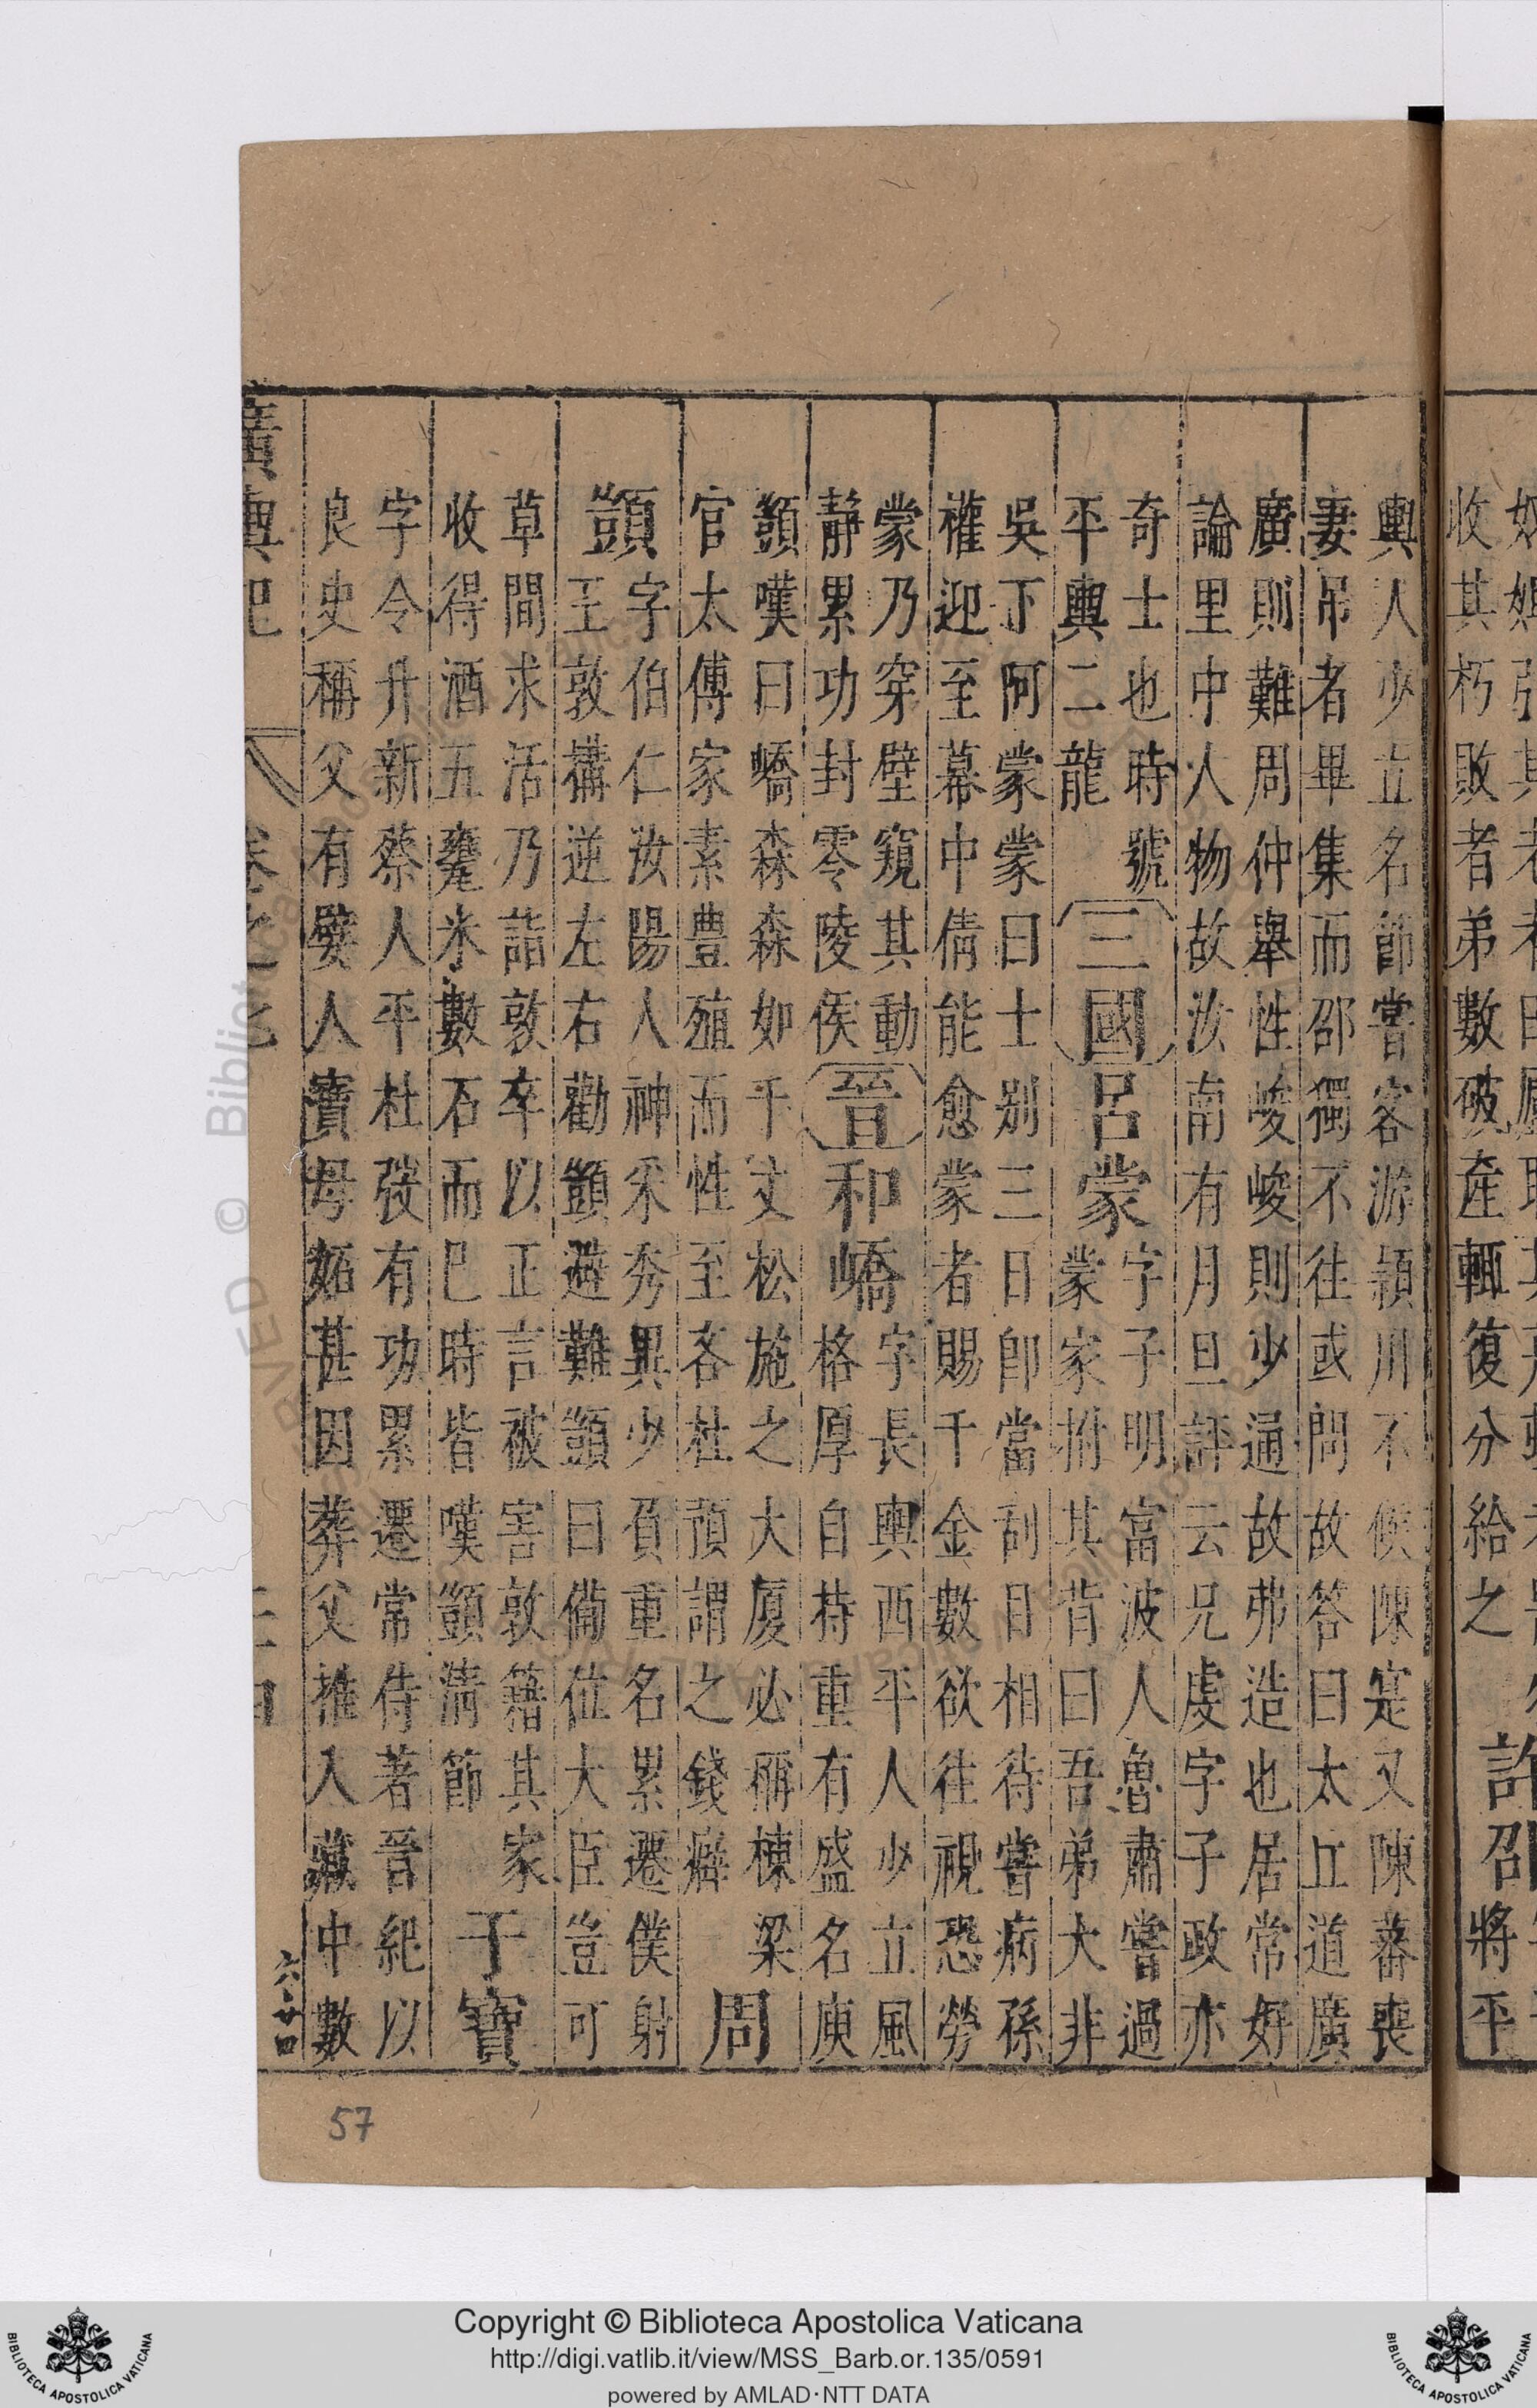 收其朽敗者弟數破產輒復分給之
許邵
將平
輿人少立名節嘗客游潁川不候陳寔又陳蕃喪
妻吊者畢集而邵獨不往或問故答曰太丘道廣
廣則難周仲舉性峻峻則少通故弗造也居常好
論里中人物故汝南有月旦評云兄虔字子政亦
奇士也時號
平輿二龍
三國
呂蒙
字子明富波人魯肅嘗過
蒙家拊其背曰吾弟大非
吳下阿蒙蒙曰士别三日卽當刮目相待嘗病孫
權迎至幕中倩能愈蒙者賜千金數欲往視恐勞
蒙乃穿壁窺其動
静累功封零陵侯
晉
和嶠
字長輿西平人少立風
格厚自持重有盛名庾
顗嘆曰嶠森森如千丈松施之大厦必稱棟梁
官太傅家素豊殖而性至吝杜預謂之錢癖
周
顗
字伯仁汝陽人神采秀異少負重名累遷僕射
王敦搆逆左右勸顗避難顗曰備位大臣豈可
草間求活乃詣敦卒以正言被害敦籍其家
收得酒五甕米數石而巳時皆嘆顗清節
于寶
字令升新蔡人平杜弢有功累遷常侍著晉紀以
良史稱父有嬖人寶母妬甚因葬父推入藏中數
廣輿記
六・廿四
57
Copyright © Biblioteca Apostolica Vaticana
http://digi.vatlib.it/view/MSS_Barb.or.135/0591
powered by AMLAD·NTT DATA
BIBLIOTECA APOSTOLICA VATICANA
BIBLIOTECA APOSTOLICA VATICANA